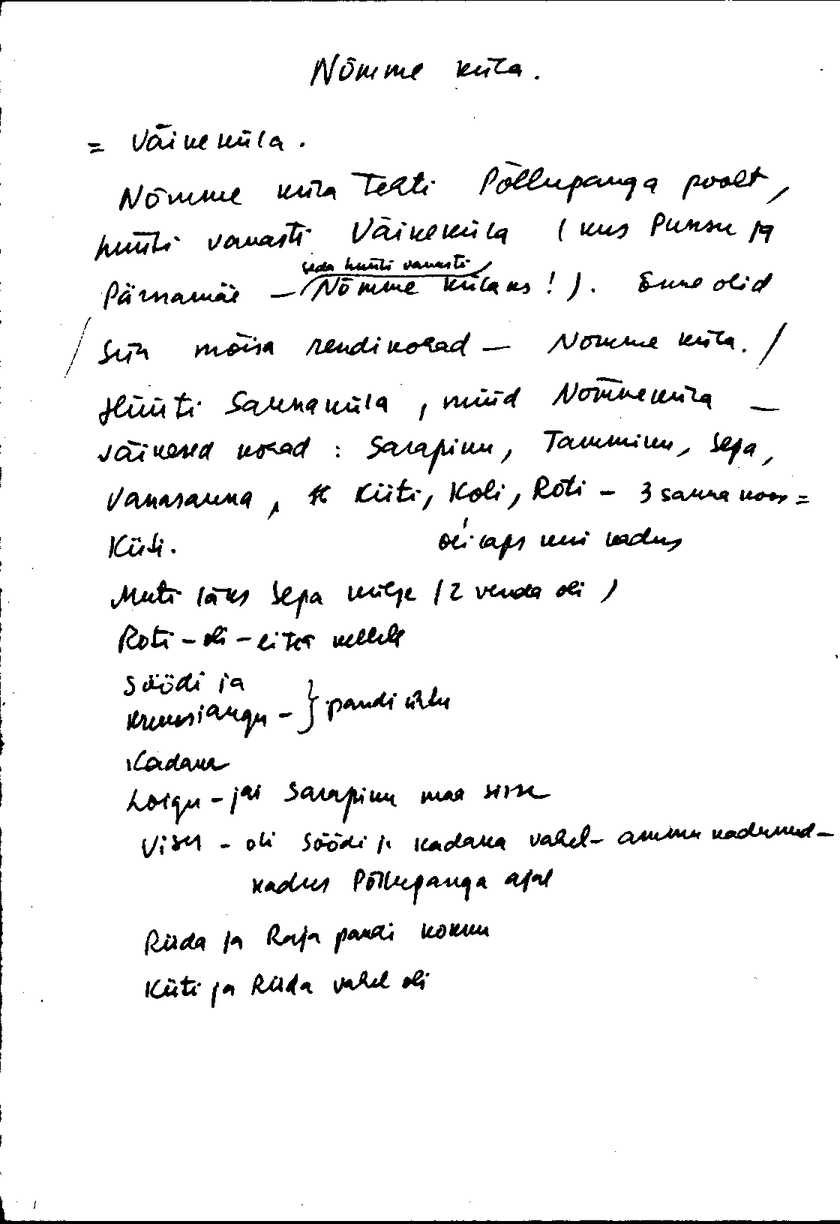 Nõmme küla.
= Väikeküla.
Nõmme küla tehti Põllupanga poolt,
hüüti vanasti Väikeküla (kus Punsu ja
seda hüüti vanasti
Pärnamäe – Nõmme külaks!). Enne olid
/ Siin mõisa rendikohad – Nõmme küla. /
Hüüti Saunaküla, nüüd Nõmmeküla –
väikesed kohad : Sarapuu, Tammiku, Sepa,
Vanasauna, Küti, Koli, Roti – 3 sauna koos =
Küti. oli laps kui kadus
Muti läks Sepa külge (2 venda oli)
Roti – oli – eitea kellele
Söödi ja
– } pandi ühte
Kadaka
Loigu – jäi Sarapuu maa sisse
Visu – oli Söödi ja Kadaka vahel – ammu kadunud –
kadus Põllupanga ajal
Riida ja Raja pandi kokku
Küti ja Riida vahel oli